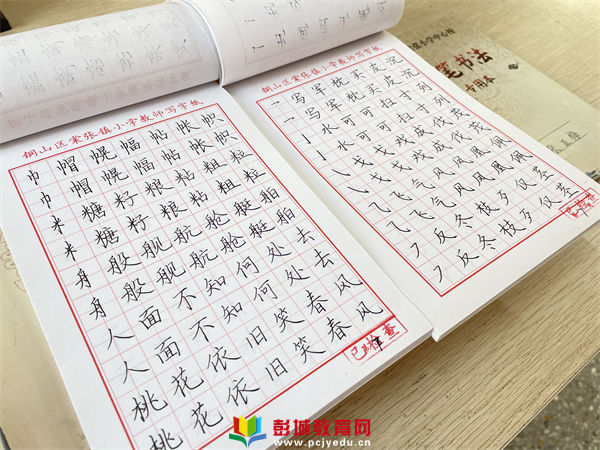 铜山区棠张镇小学教师写字板
巾帽幌幅帖帐帜
巾帽幌幅帖帐帜
米糖籽粮粘粗粒
米糖籽粮粘粗粒
舟般舰航舱艇舶
舟般舰航舱艇舶
人面不知何处去
人面不知何处去
桃花依旧笑春风
桃花依旧笑春风
已检查
铜山区棠张镇小学教师写字板
乛写军枕买皮沉
乛写军枕买皮沉
亅水可可扫寸列
亅水可可扫寸列
㇂戈戈戏成伐茂
㇂戈戈戏成伐茂
⺄飞气风凤凰佩
⺄飞气风凤凰佩
㇇反冬枝歹仅茎
㇇反冬枝歹仅茎
已检查
小学中心校
笔书法
专用本
彭城教育网
www.pcjyedu.cn